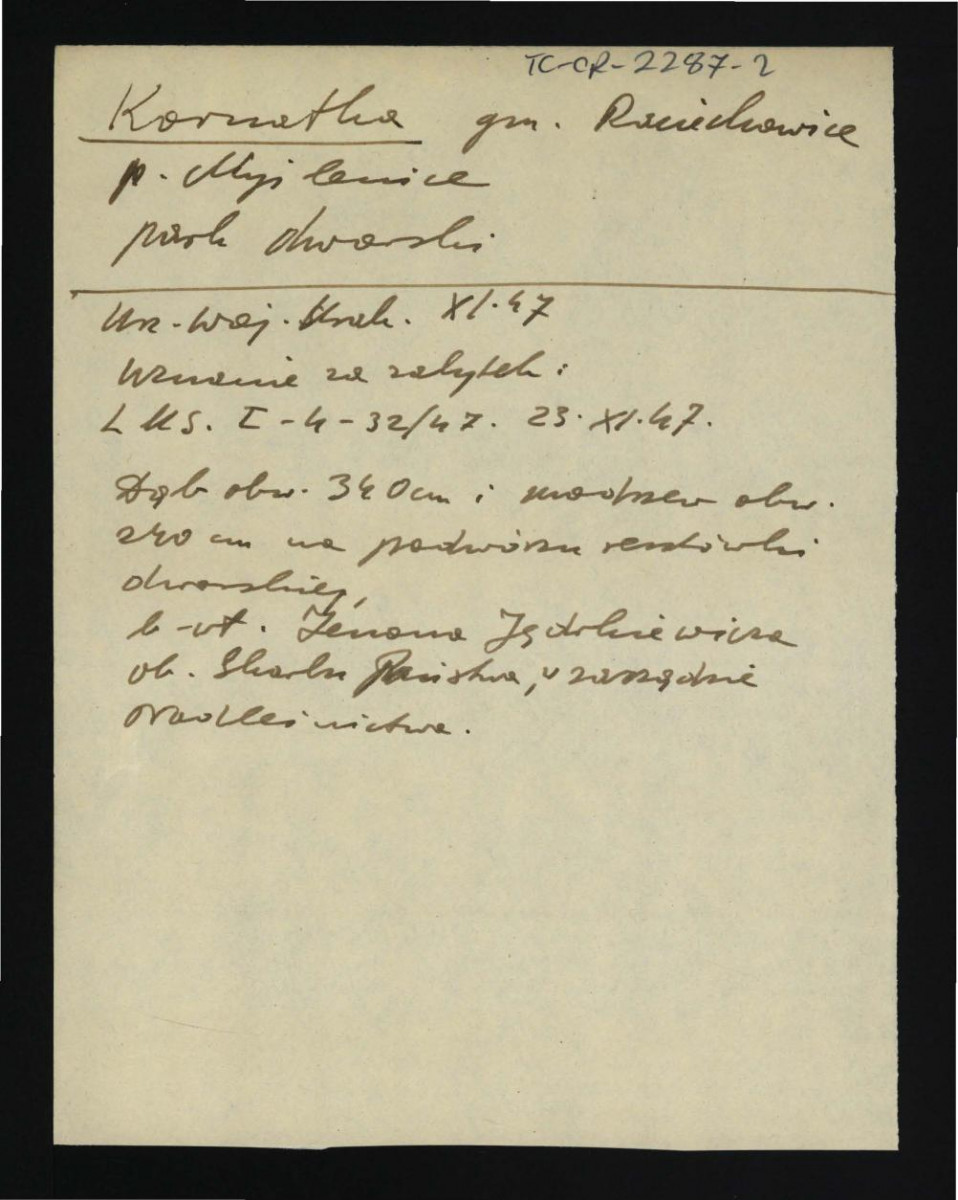 TC-CR-2287-2
Kornatka gm. Raciechowice
p. Myślenice
park dworski
Urz. Woj. Krak. XI.47
Uznanie za zabytek:
L KS. I-4-32/47. 23.XI.47.
Dąb obw. 340 cm i modrzew obw.
240 cm na podwórzu resztówki
dworskiej,
b-wł. Zenona Jędrkiewicza
ob. Skarbu Państwa, w zarządzie
Nadleśnictwa.